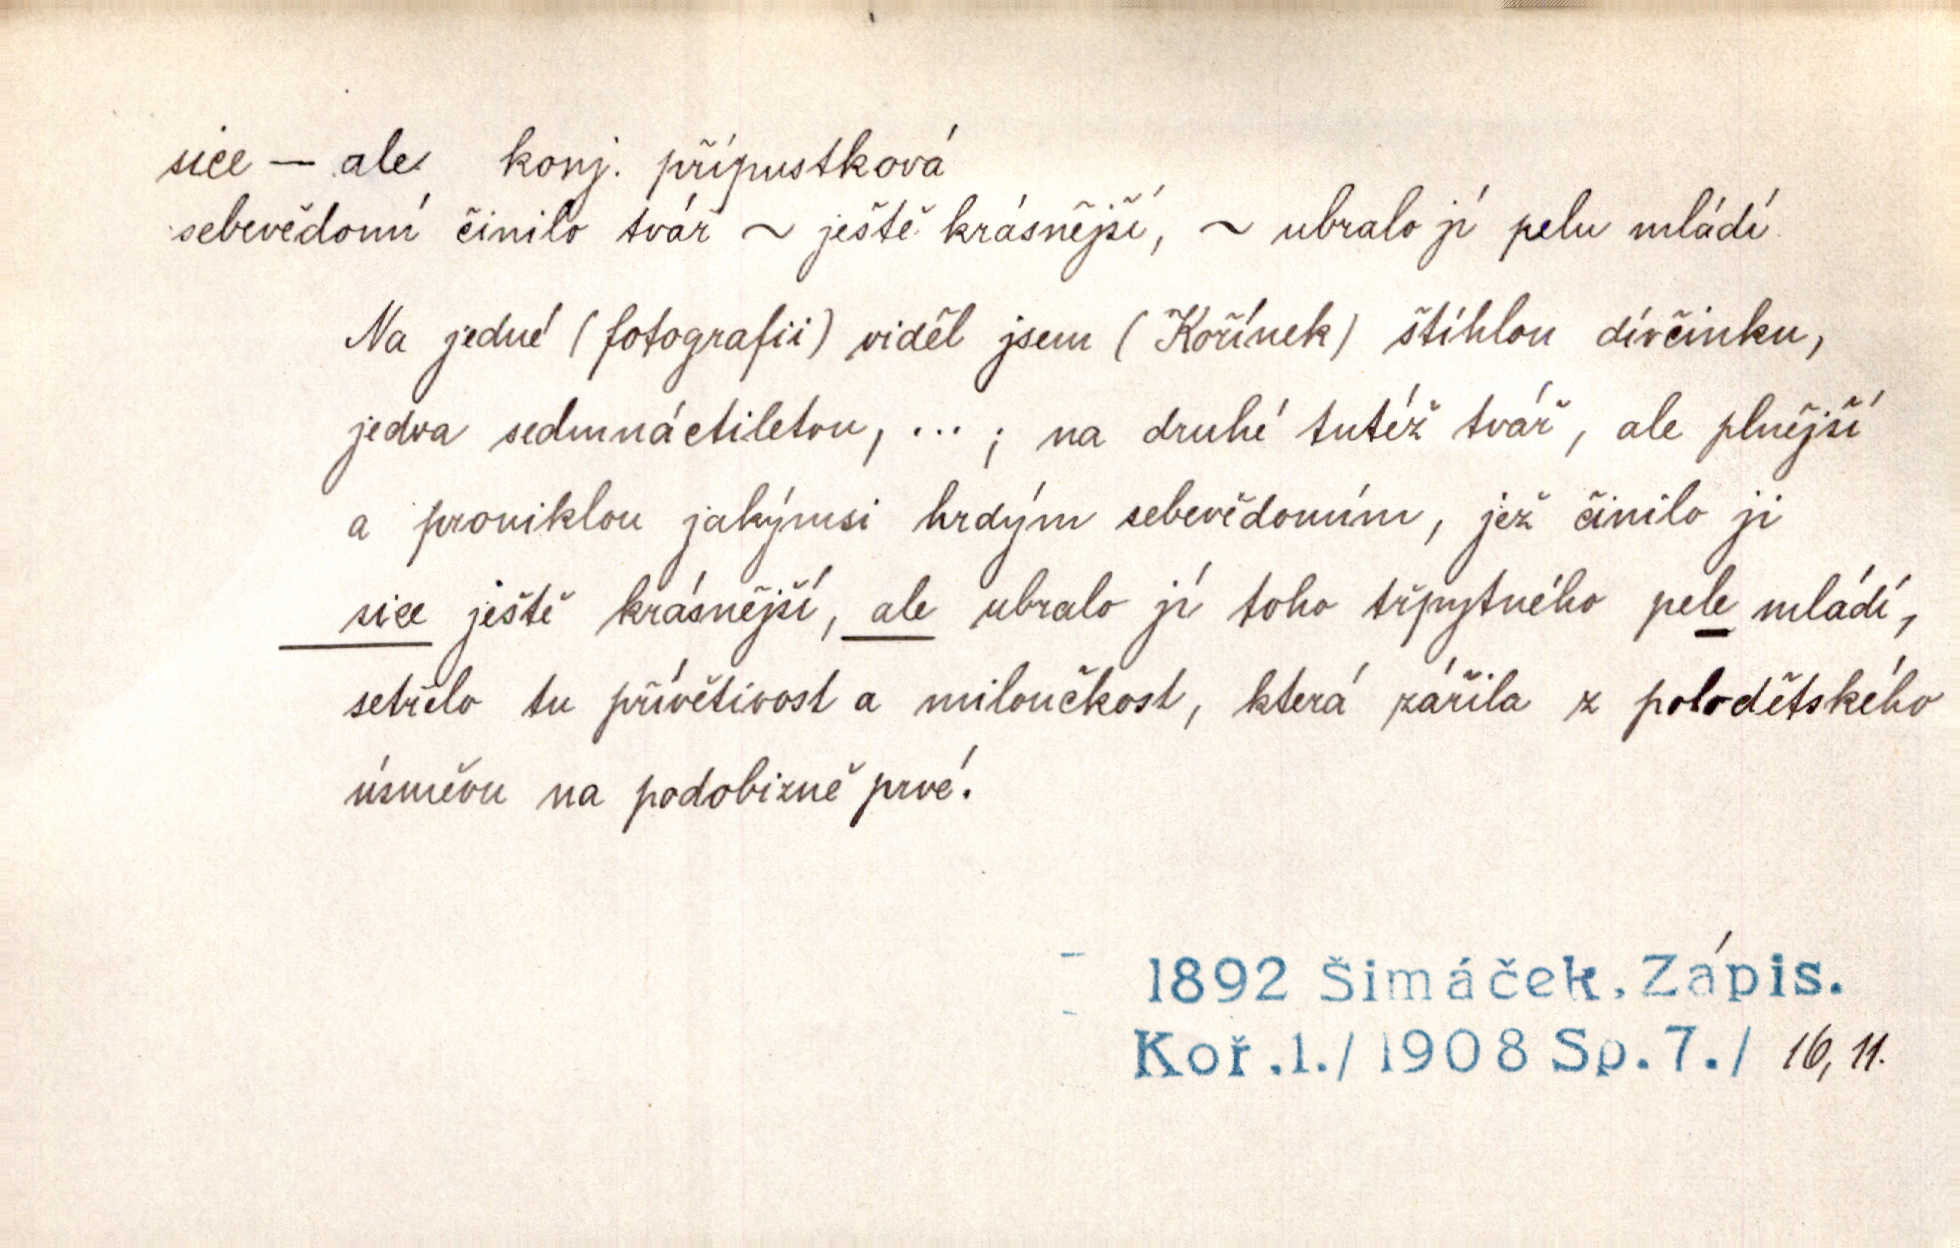 sice — ale konj. přípustková
sebevědomí činilo tvář ~ ještě krásnější, ~ ubralo jí pelu mládí
Na jedné (fotografii) viděl jsem (Kořínek) štíhlou dívčinku,
jedva sedmnáctiletou, ... ; na druhé tutéž tvář, ale plnější
a proniklou jakýmsi hrdým sebevědomím, jež činilo ji
sice ještě krásnější, ale ubralo jí toho třpytného pele mládí,
setřelo tu přívětivost a miloučkost, která zářila z polodětského
úsměvu na podobizně prvé.
1892 Šimáček. Zápis.
Koř.1./1908 Sp.7./ 16, 11.